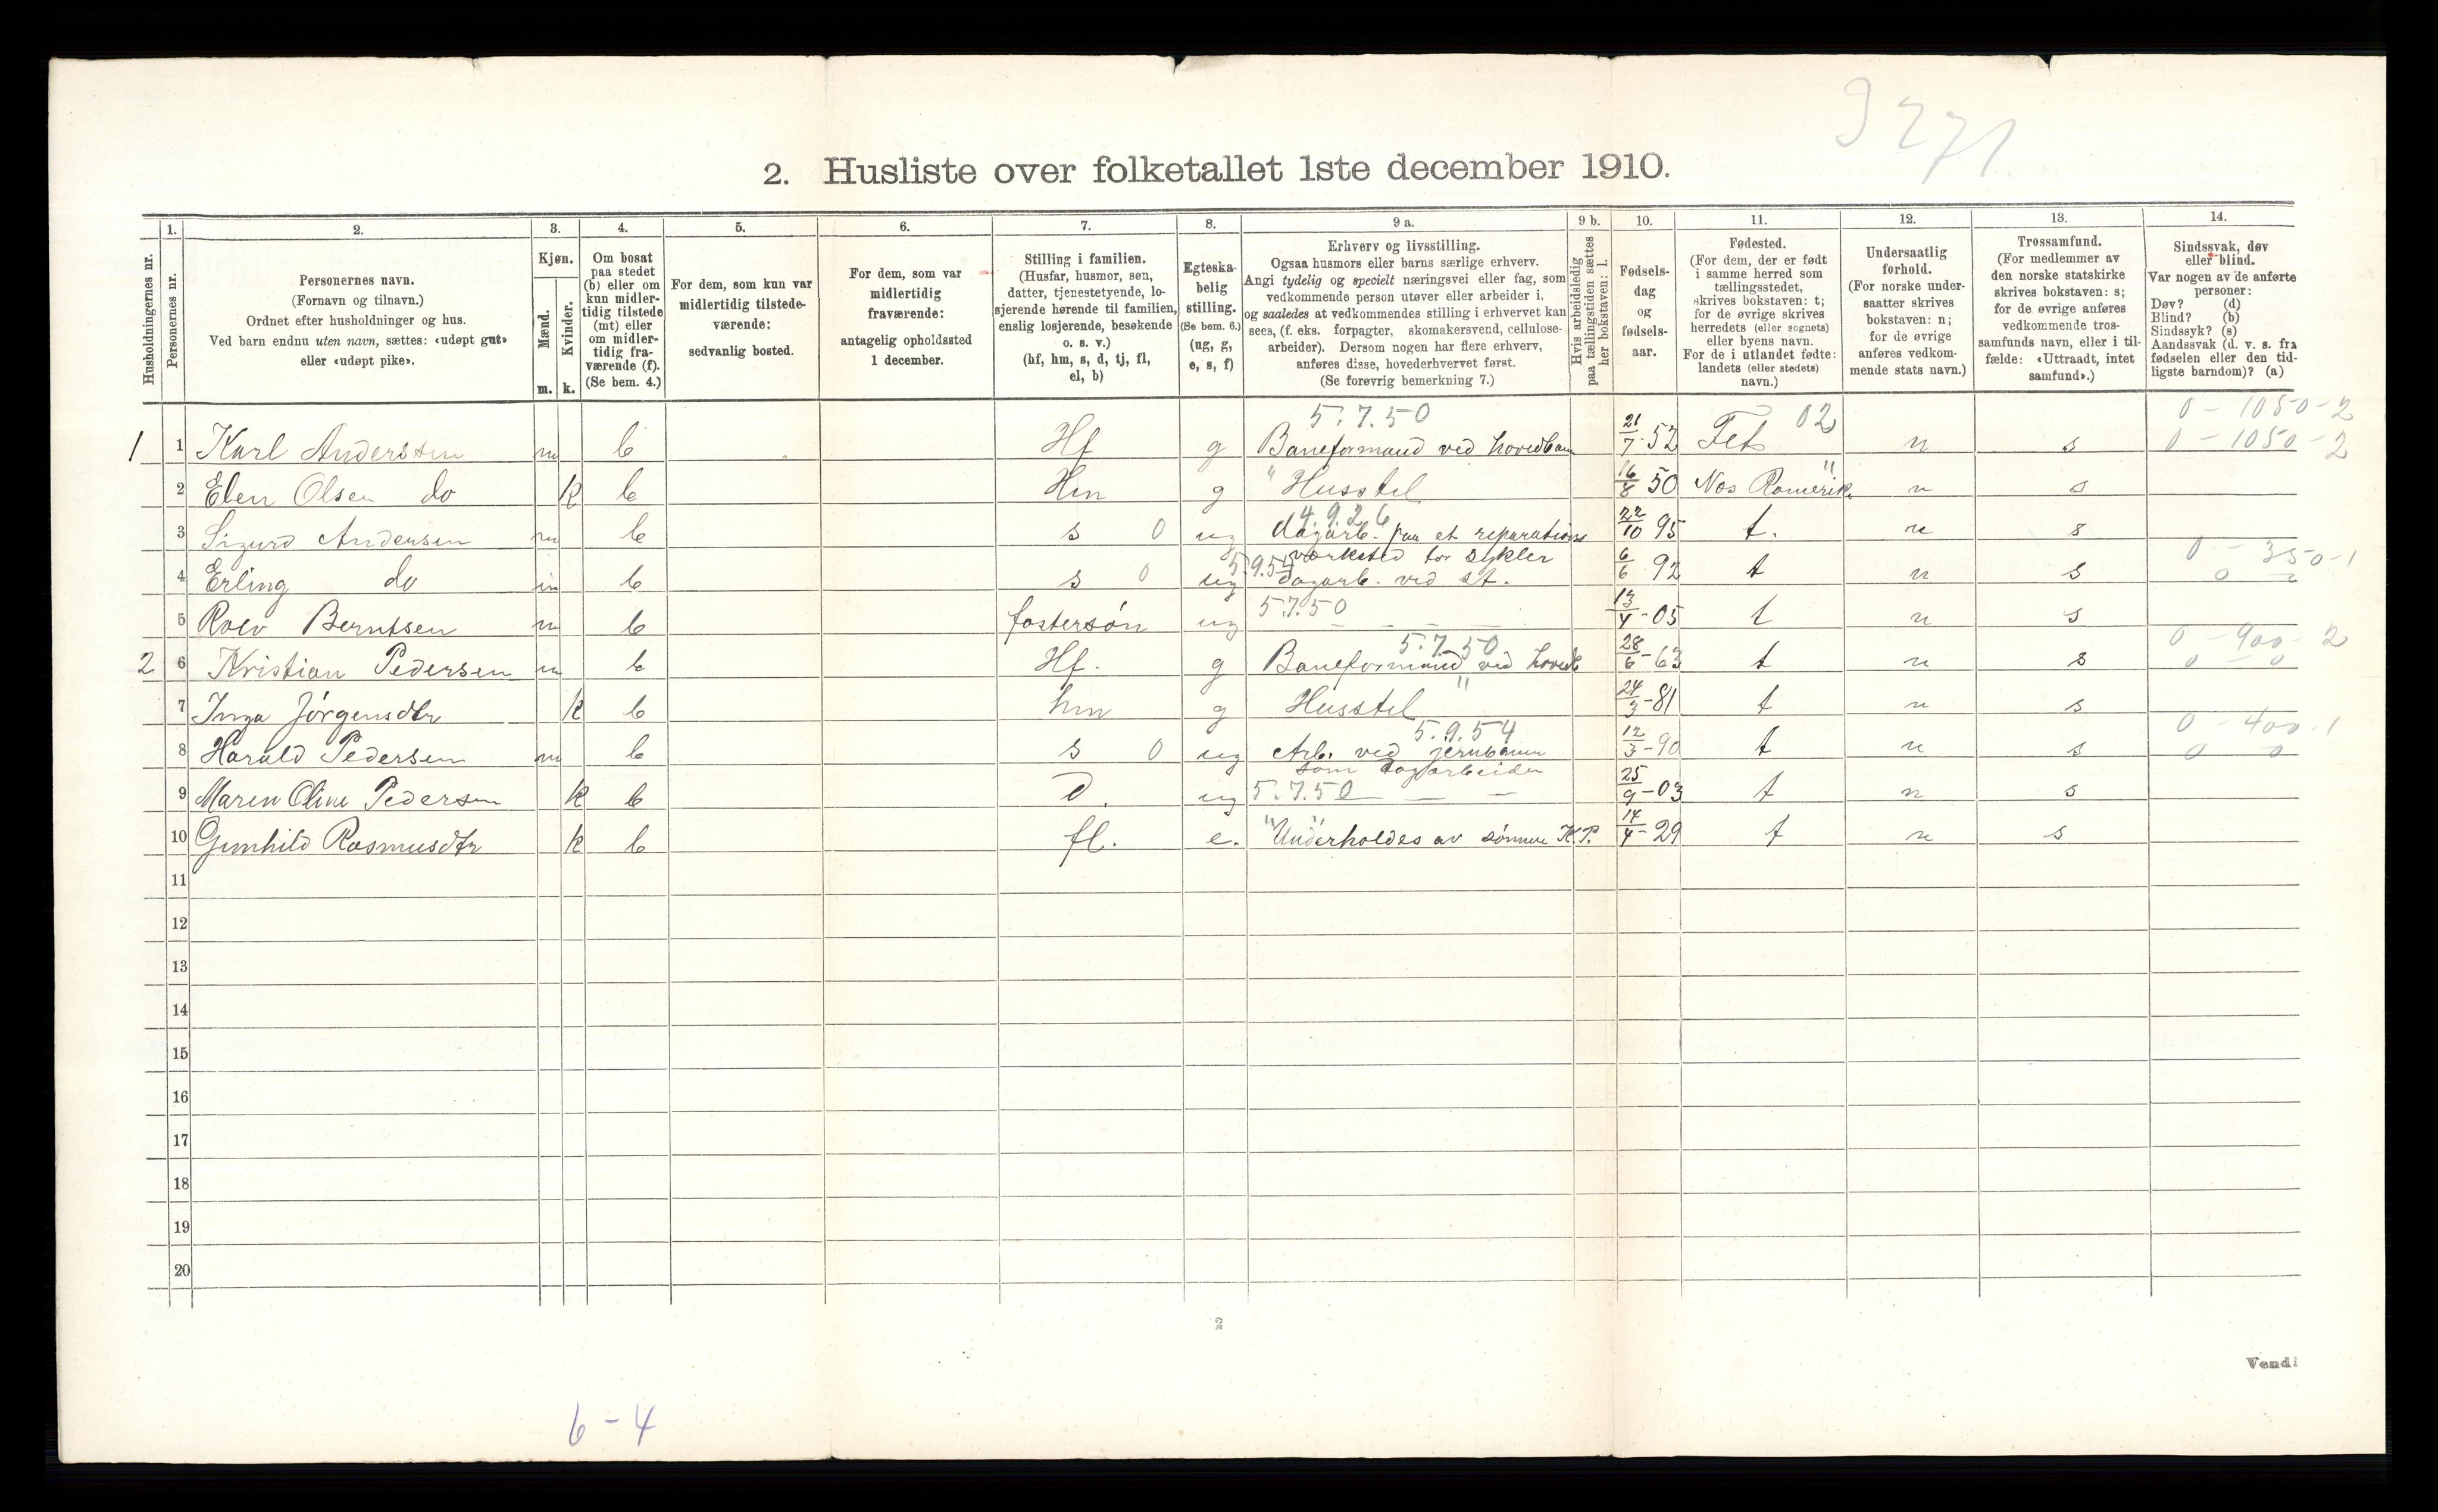 9271
2. Husliste over folketallet 1ste december 1910.
Husholdningernes nr.
1.
Personernes nr.
2.
Personernes navn.
(Fornavn og tilnavn.)
Ordnet efter husholdninger og hus.
Ved barn endnu uten navn, sættes: «udøpt gut»
eller «udøpt pike».
3.
Kjøn.
Mænd.
Kvinder.
m. k.
4.
Om bosat
paa stedet
(b) eller om
kun midler-
tidig tilstede
(mt) eller
om midler-
tidig fra-
værende (f).
(Se bem. 4.)
5.
For dem, som kun var
midlertidig tilstede-
værende:
sedvanlig bosted.
6.
For dem, som var
midlertidig
fraværende:
antagelig opholdssted
1 december.
7.
Stilling i familien.
(Husfar, husmor, søn,
datter, tjenestetyende, lo-
sjerende hørende til familien,
enslig losjerende, besøkende
o. s. v.)
(hf, hm, s, d, tj, fl,
el, b)
8.
Egteska-
belig
stilling.
(Se bem. 6.)
(ug, g,
e, s, f)
9 a.
Erhverv og livsstilling.
Ogsaa husmors eller barns særlige erhverv.
Angi tydelig og specielt næringsvei eller fag, som
vedkommende person utøver eller arbeider i,
og saaledes at vedkommendes stilling i erhvervet kan
sees, (f. eks. forpagter, skomakersvend, cellulose-
arbeider). Dersom nogen har flere erhverv,
anføres disse, hovederhvervet først.
(Se forøvrig bemerkning 7.)
9 b.
Hvis arbeidsledig
paa tællingstiden sættes
her bokstaven: l.
10.
Fødsels-
dag
og
fødsels-
aar.
11.
Fødested.
(For dem, der er født
i samme herred som
tællingsstedet,
skrives bokstaven: t;
for de øvrige skrives
herredets (eller sognets)
eller byens navn.
For de i utlandet fødte:
landets (eller stedets)
navn.)
12.
Undersaatlig
forhold.
(For norske under-
saatter skrives
bokstaven: n;
for de øvrige
anføres vedkom-
mende stats navn.)
13.
Trossamfund.
(For medlemmer av
den norske statskirke
skrives bokstaven: s;
for de øvrige anføres
vedkommende tros-
samfunds navn, eller i til-
fælde: «Uttraadt, intet
samfund».)
14.
Sindssvak, døv
eller blind.
Var nogen av de anførte
personer:
Døv? (d)
Blind? (b)
Sindssyk? (s)
Aandssvak (d. v. s. fra
fødselen eller den tid-
ligste barndom)? (a)
5.7.50 02 0 - 1050 - 2
1 1 Karl Andersen m b Hf g Baneformand ved hovedban 21/7-52 Fet n s 0 - 1050 - 2
2 Elen Olsen do k b Hm g " Husstel 16/8 50 Nes Romerike " n s
4.9.26
3 Sigurd Andersen m b s 0 ug dagarb. paa et reparations 22/10 95 t. n s
verksted for sykler 0 - 350 - 1
4 Erling do m b s 0 ug 5.9.54 dagarb. ved st. 6/6 92 t n s 0
5 Rolv Berntsen m b fostersøn ug 5.7.50 - - - 13/4-05 t n s
5.7.50 0 - 900 - 2
2 6 Kristian Pedersen m b Hf. g Baneformand ved hovedb 28/6-63 t n s 0 - 0
7 Inga Jørgensdtr k b hm g Husstel " 24/3-81 t n s
5.9.54 0 - 400 - 1
8 Harald Pedersen m b s 0 ug Arb. ved jernbanen 12/3-90 t n s 0 0
som dagarbeider
9 Maren Oline Pedersen k b D. ug 5.7.50 - - - 25/9-03 t n s
10 Gunhild Rasmusdtr k b fl. e. " " Underholdes av sønnen K.P. 14/4-29 t n s
11
12
13
14
15
16
17
18
19
20
2
Vend!
6-4